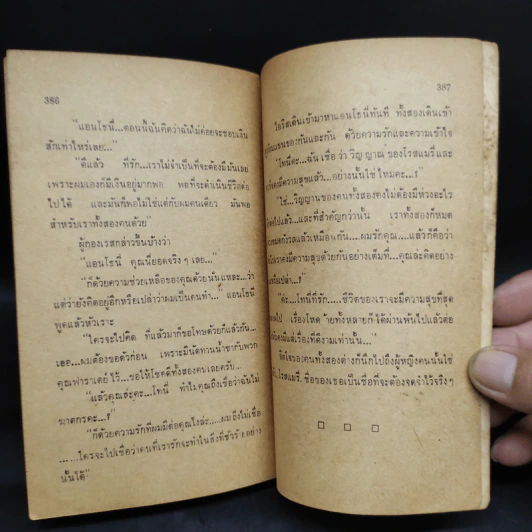 386
"แอนโธนี่...ตอนนี้ฉันคิดว่าฉันไม่ค่อยจะชอบเงิน
สักเท่าไหร่เลย..."
"ดีแล้ว ที่รัก...เราไม่จำเป็นที่จะต้องมีมันเลย
เพราะผมเองก็มีเงินอยู่มากพอ พอที่จะดำเนินชีวิตต่อ
ไปได้ และมันก็พอไม่ใช่แค่กับผมคนเดียว มันพอ
สำหรับเราทั้งสองคนด้วย"
ผู้กองเรสกล่าวขึ้นบ้างว่า
"แอนโธนี่ คุณนี่ยอดจริงๆ เลย..."
"ก็ด้วยความช่วยเหลือของคุณด้วยนั่นแหละ...ว่า
แต่ว่ายังคิดอยู่อีกหรือเปล่าว่าผมเป็นคนทำ" แอนโธนี่
พูดแล้วหัวเราะ
"ใครจะไปคิด ที่แล้วมาก็ขอโทษด้วยก็แล้วกัน...
เธอ...ผมต้องขอตัวก่อน เพราะมีนัดทานน้ำชากับพวก
คุณฟาราเดย์ ไว้...ขอให้โชคดีทั้งสองคนเลยครับ..."
"แล้วคุณล่ะคะ...โทนี่ ทำไมคุณถึงเชื่อว่าฉันไม่
ฆาตกรคะ...?"
"ก็ด้วยความรักที่ผมมีต่อคุณไงล่ะ....ผมถึงไม่เชื่อ
......ใครจะไปเชื่อว่าคนที่เรารักจะทำในสิ่งที่ชั่วร้ายอย่าง
นั้นได้"
387
ไอริสเดินเข้ามาหาแอนโธนี่ทันที ทั้งสองเดินเข้า
กันและกัน ด้วยความรักและความเข้าใจ
"โทนี่คะ...ฉันเชื่อว่าวิญญาณของโรสแมรี่และ
คงมีความสุขแล้ว...อย่างนั้นใช่ไหมคะ...?"
"ใช่...วิญญานของคนทั้งสองคงไม่ต้องมีห่วงอะไร
ไปแล้ว...และที่สำคัญกว่านั้น เราทั้งสองก็หมด
แล้วเหมือนกัน...ผมรักคุณ....แล้วก็คิดว่า
เราคงมีความสุขด้วยกันอย่างเต็มที่...คุณล่ะคิดอย่าง
หรือเปล่า...?"
"ค่ะ...โทนี่ที่รัก....ชีวิตของเราจะมีความสุขที่สุด
ไป เรื่องโหดร้ายทั้งหลายก็ได้ผ่านพ้นไปแล้วต่อ
คงมีแต่เรื่องที่ดีงามเท่านั้น..."
จิตใจของคนทั้งสองต่างก็นึกไปถึงผู้หญิงคนนั้นใช่
โรสแมรี่. ชื่อของเธอเป็นชื่อที่จะต้องจดจำไว้จริงๆ
□ □ □